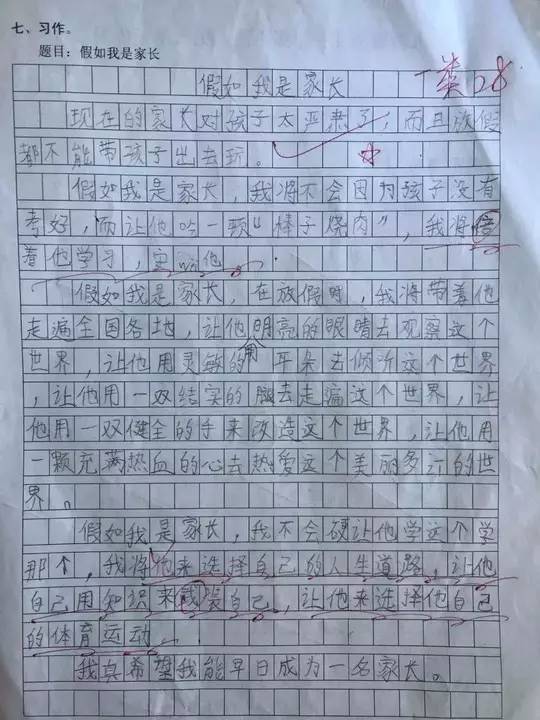 七、习作。
题目：假如我是家长
假如我是家长
一类 28
现在的家长对孩子太严肃了，而且放假
都不能带孩子出去玩。
假如我是家长，我将不会因为孩子没有
考好，而让他吟一顿“棒子烧肉”，我将倍
着他学习，安wèi他。
假如我是家长，在放假时，我将带着他
走遍全国各地，让他用明亮的眼睛去观察这个
世界，让他用灵敏的耳朵去倾听这个世界
，让他用一双结实的腿去走遍这个世界，让
他用一双健全的手来改造这个世界，让他用
一颗充满热血的心去热爱这个美丽多汀的世
界。
假如我是家长，我不会硬让他学这个学
那个，我将他来选择自己的人生道路，让他
自己用知识来装自己，让他来选择他自己
的体育运动。
我真希望我能早日成为一名家长。